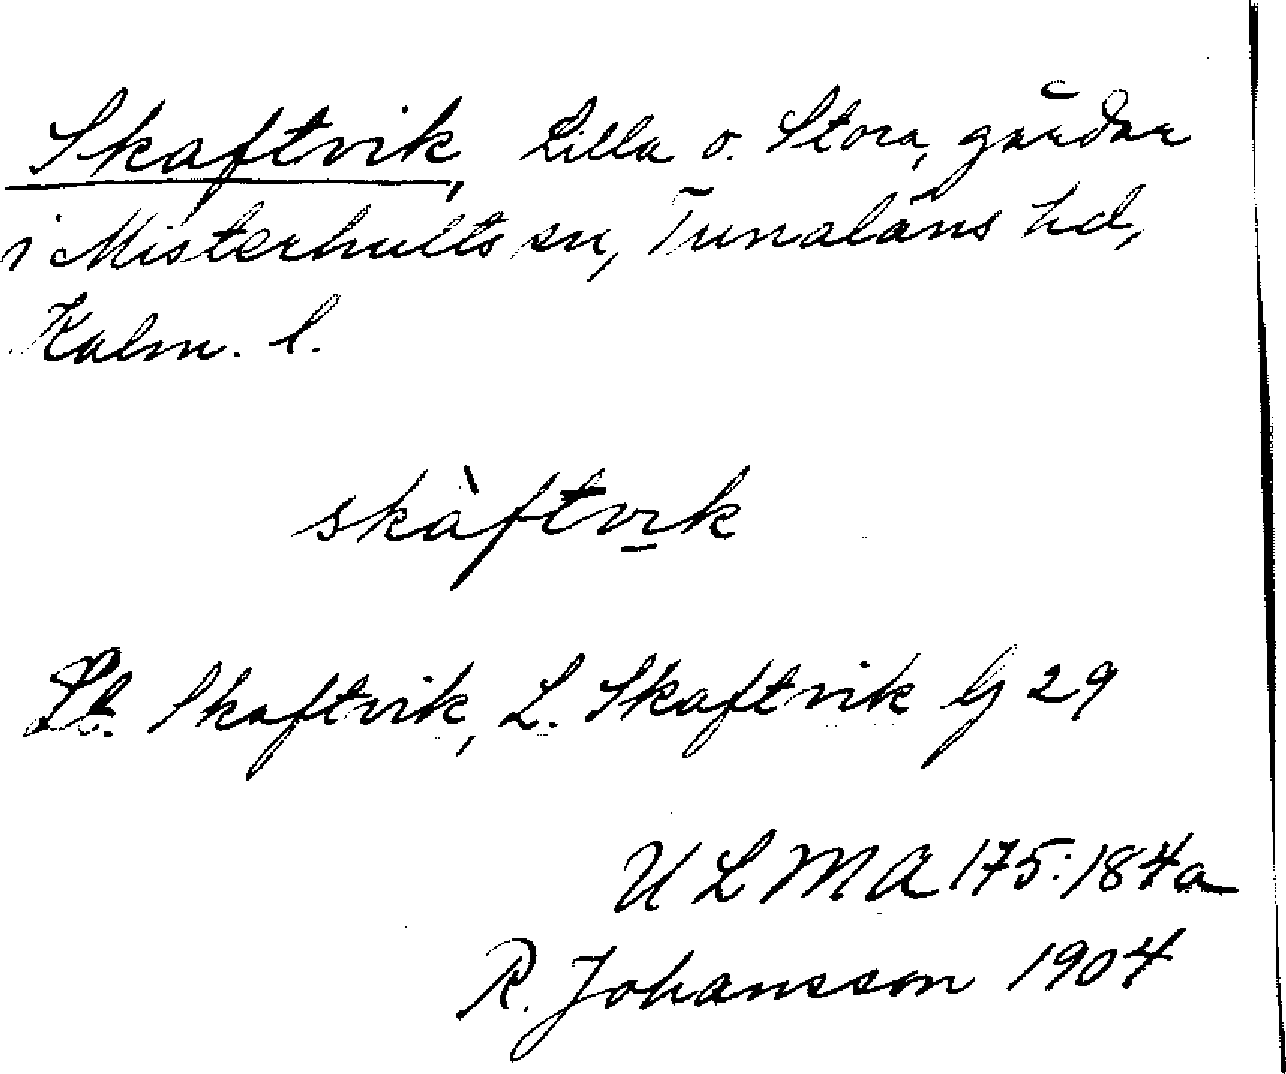 Skaftvik, Lilla o. Stora, gårdar
i Misterhults sn, Tunaläns hd,
Kalm. l.
skàftvik
St. Skaftvik, L. Skaftvik Gj 29
ULMA 175:184a
R. Johansson 1904